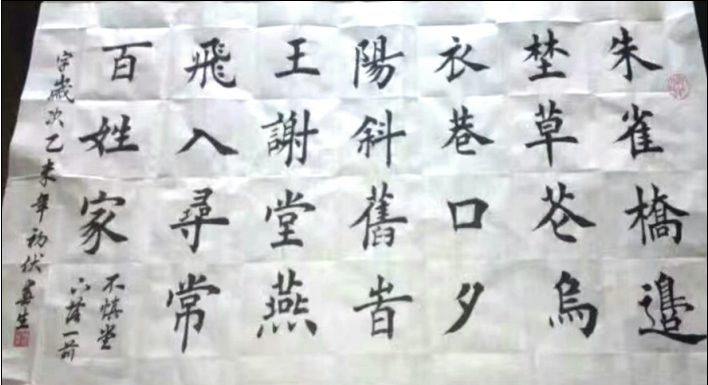 朱雀橋邊
埜草芲烏
衣巷口夕
陽斜舊旹
王謝堂燕
飛入尋常
百姓家
不慎堂
下落一前
字歲次乙未年初伏生